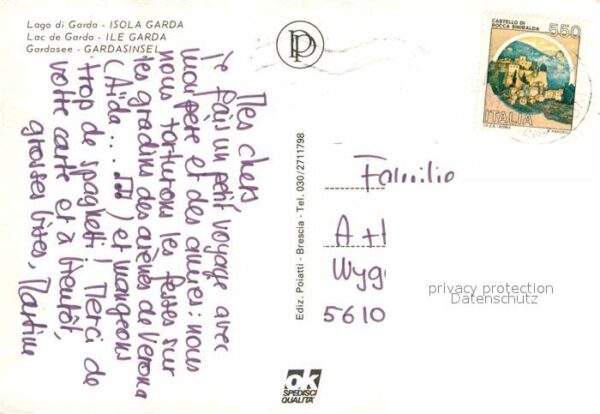 Lago di Garda - ISOLA GARDA
Lac de Garda - ILE GARDA
Gardasee - GARDASINSEL
Mes chers
je fais un petit voyage avec
mon père et des amies : nous
nous torturons les fesses sur
les gradins des arènes de Verona
(Aïda... ) et mangeons
trop de spaghetti, Merci de
votre carte et à bientôt,
grosses bises, Martine
Ediz. Poiatti - Brescia - Tel. 030/2711798
ok
SPEDISCI
QUALITA'
CASTELLO DI
ROCCA SINIBALDA
550
ITALIA
Familie
A + H
Wyg
5610
privacy protection
Datenschutz